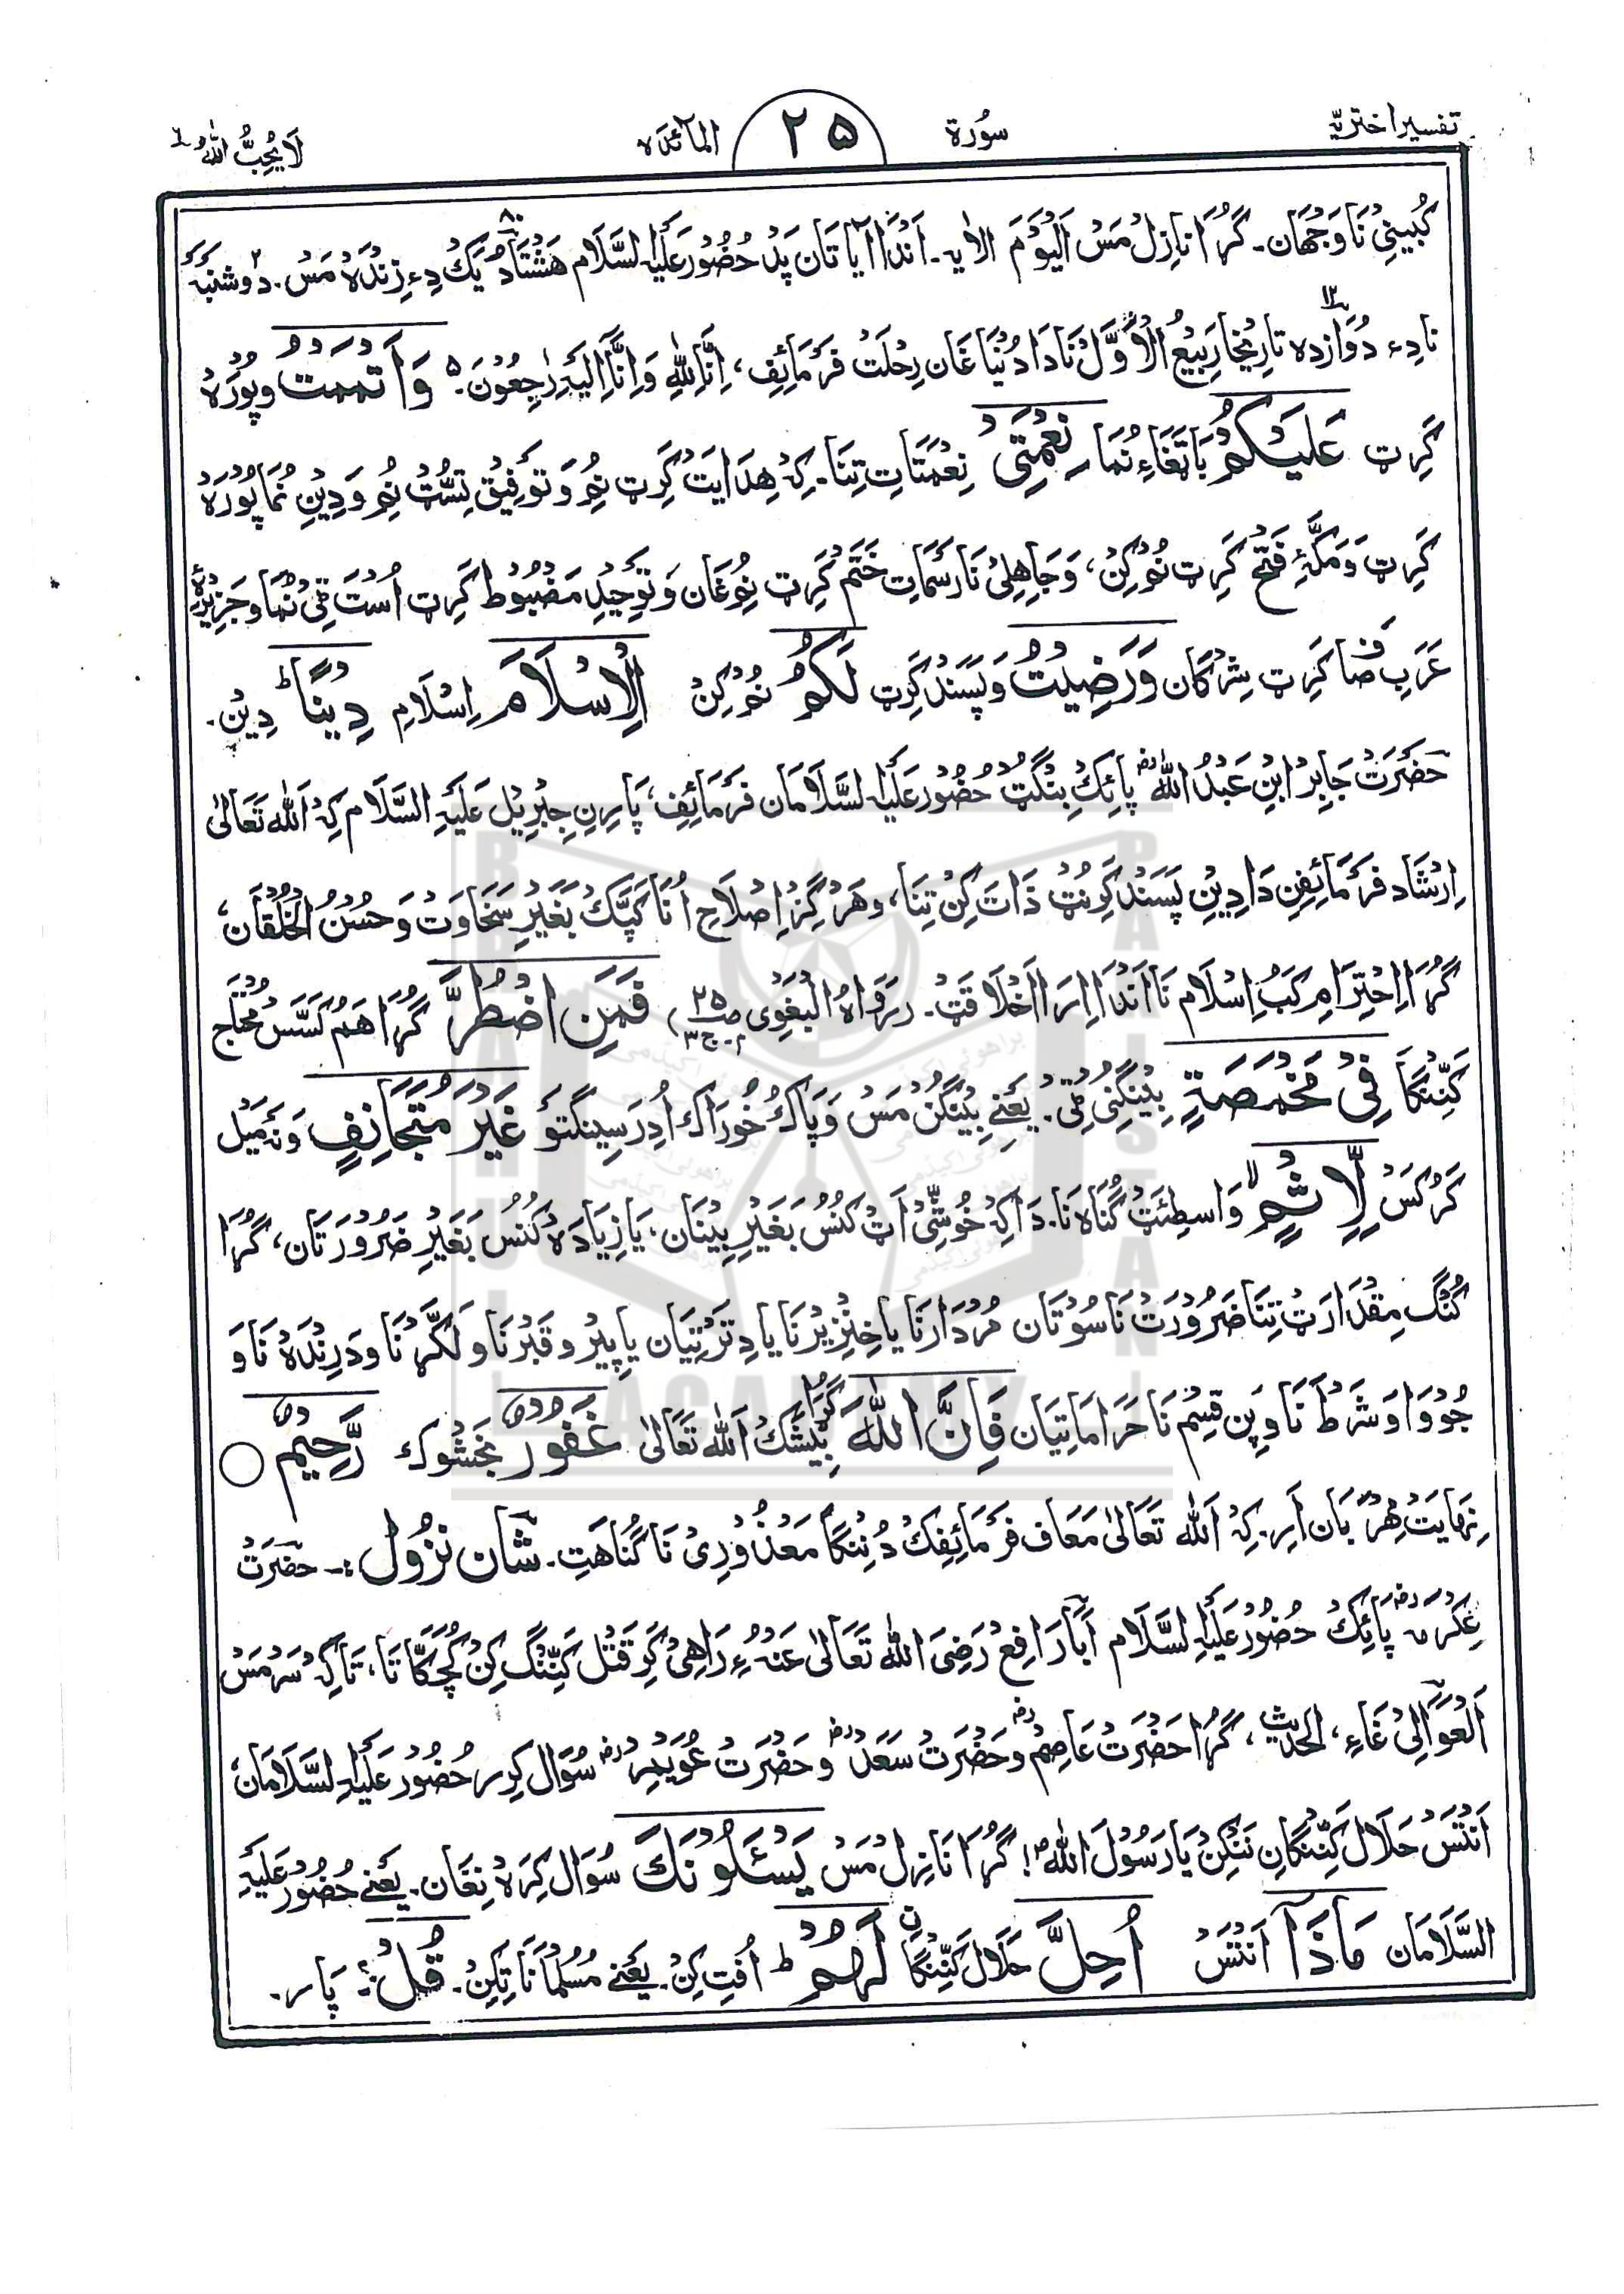 تفسیر اختریہ سُورة ۲۵ المآئدہ لَا یُحِبُّ اللّٰهُ ٦
کُبِینِی نَا وَجَہَان۔ گُڑَا نازِل مَس اَلْیَوْمَ الایہ۔ اَنْدَا آیَاتَان پَد حُضُور عَلَیْہِ السَّلَام ہَشْتَاد یَک دِءِ زِنْدَہ مَس۔ دُوشَنْبَہ
نا دِء دُوَازدہ تارِیخَا رَبِیْعُ الْاَوَّل نَا دَا دُنْیَا غَان رِحْلَتْ فَرْمَائِف، اِنَّا لِلّٰہِ وَاِنَّآ اِلَیْہِ رٰجِعُوْنَ۔ ۵ وَاَتْمَمْتُ و پُورَہ
کَرِٹ عَلَیْکُمْ بَاتَغَاءِ نُمَا نِعْمَتِیْ نِعْمَتَاتِ تِنَا۔ کِہ ہِدَایَتْ کَرِٹ نُم وَتَوفِیْق تِسُّٹ نُم وَدِیْنِ نُمَا پُورَہ
کَرِٹ وَمَکَّہِ فَتْح کَرِٹ نُم کِنْ، وَجَاہِلِی نَا رَسْمَاتِ خَتَم کَرِٹ نُم غَان وَتَوحِیْدِ مَضْبُوط کَرِٹ اُسْت ٹِی نُمَا وَجَزِیرَہ
عَرَبِ صَاف کَرِٹ شِرْکَان وَرَضِیْتُ وَپَسَنْد کَرِٹ لَکُمُ نُم کِنْ الْاِسْلَامَ اِسْلَامِ دِیْنًا ؕ دِیْن۔
حَضْرَتْ جَابِر ابْنِ عَبْدُ اللّٰہ رض پَائِک بِنْگُٹ حُضُور عَلَیْہِ السَّلَامَان فَرْمَائِف، پَارِنِ جِبْرِیْل عَلَیْہِ السَّلَام کِہ اَللّٰہ تَعَالٰی
اِرْشَاد فَرْمَائِفِن دَا دِیْنِ پَسَنْد کَرِنُٹ ذَات کِنْ تِنَا، وَہَرْگِز اِصْلَاحِ اُنَا کَپَّک بَغَیْرِ سَخَاوَتْ وَحُسْنُ الْخُلْقَان،
گُڑَا اِحْتِرَام کَبْ اِسْلَام نَا اَنْدَا اِرَا اَخْلَاقَتْ۔ (رَوَاہُ الْبَغَوِی ص۲۵ ج۳) فَمَنِ اضْطُرَّ گُڑَا ہَم کَسَّس مُحْتَاج
کَنِّنْگَا فِیْ مَخْمَصَۃٍ بِیْنِگُنِی ٹِی۔ یَعْنِے بِیْنْگُن مَس وَپَاک خُورَاک اُدِ رَسِیْنگتَو غَیْرَ مُتَجَانِفٍ وَنَہ مَیْل
کَرُکَس لِّاِثْمٍ ۙ وَاسِطَئِٹ گُنَاہ نَا۔ دَا کِہ خُوشِّی اَٹ کُنُسْ بَغَیْرِ بِیْنَان، یَا زِیَادَہ کُنُسْ بَغَیْرِ ضَرُورَتَان، گُڑَا
کُنِنْگ مِقْدَارَٹ تِنَا ضَرُورَتْ نَا سُوتَان مُرْدَار نَا یَا خِنْزِیْر نَا یَا دِتَرْتِیَان یَا پِیْر وقَبْر نَا وَ لَکَّر نَا وَدَرِنْدَہ نَا وَ
جُووَا وَشَرْط نَا وَپِن قِسْم نَا حَرَامَاتِیَان فَاِنَّ اللّٰہَ گُڑَا بِیْشَک اَللّٰہ تَعَالٰی غَفُوْرٌ بَخْشُوک رَّحِیْمٌ ○
نِہَایَتْ مِہْرْبَان اَرے۔ کِہ اَللّٰہ تَعَالٰی مَعَاف فَرْمَائِفَک دُنَنْگَا مَعْذُورِی نَا گُنَاہَتِ۔ شَان نُزُول :۔ حَضْرَتْ
عِکْرَمَہ رض پَائِک حُضُور عَلَیْہِ السَّلَام اَبَا رَافِع رَضِیَ اللّٰہ تَعَالٰی عَنْہُ ءِ رَاہِی کَرِ قَتْل کَنِّنْگ کِن کُچَکَّاتَا، تَاکِہ سَر مَس
اَلْعَوَالِیْ غَاءِ، الحدیث، گُڑَا حَضْرَتْ عَاصِم رض وَحَضْرَتْ سَعْد رض وَحَضْرَتْ عُوَیْمِر رض سُوَال کَرِر حُضُور عَلَیْہِ السَّلَامَان،
اَنْتَس حَلَال کَنِّنْگَانِ نَنْکِن یَا رَسُوْلَ اللّٰہِ ! گُڑَا نَازِل مَس یَسْـَٔلُوْنَکَ سُوَال کِرَہ نِغَان۔ یَعْنِے حُضُور عَلَیْہِ
السَّلَامَان مَاذَآ اَنْتَس اُحِلَّ حَلَال کَنِّنْگَان لَہُمْ ؕ اُفتِ کِن۔ یَعْنِے مُسْلمَانَاتِکِن۔ قُلْ :۔ پَار۔
BRAHUI ACADEMY PAKISTAN